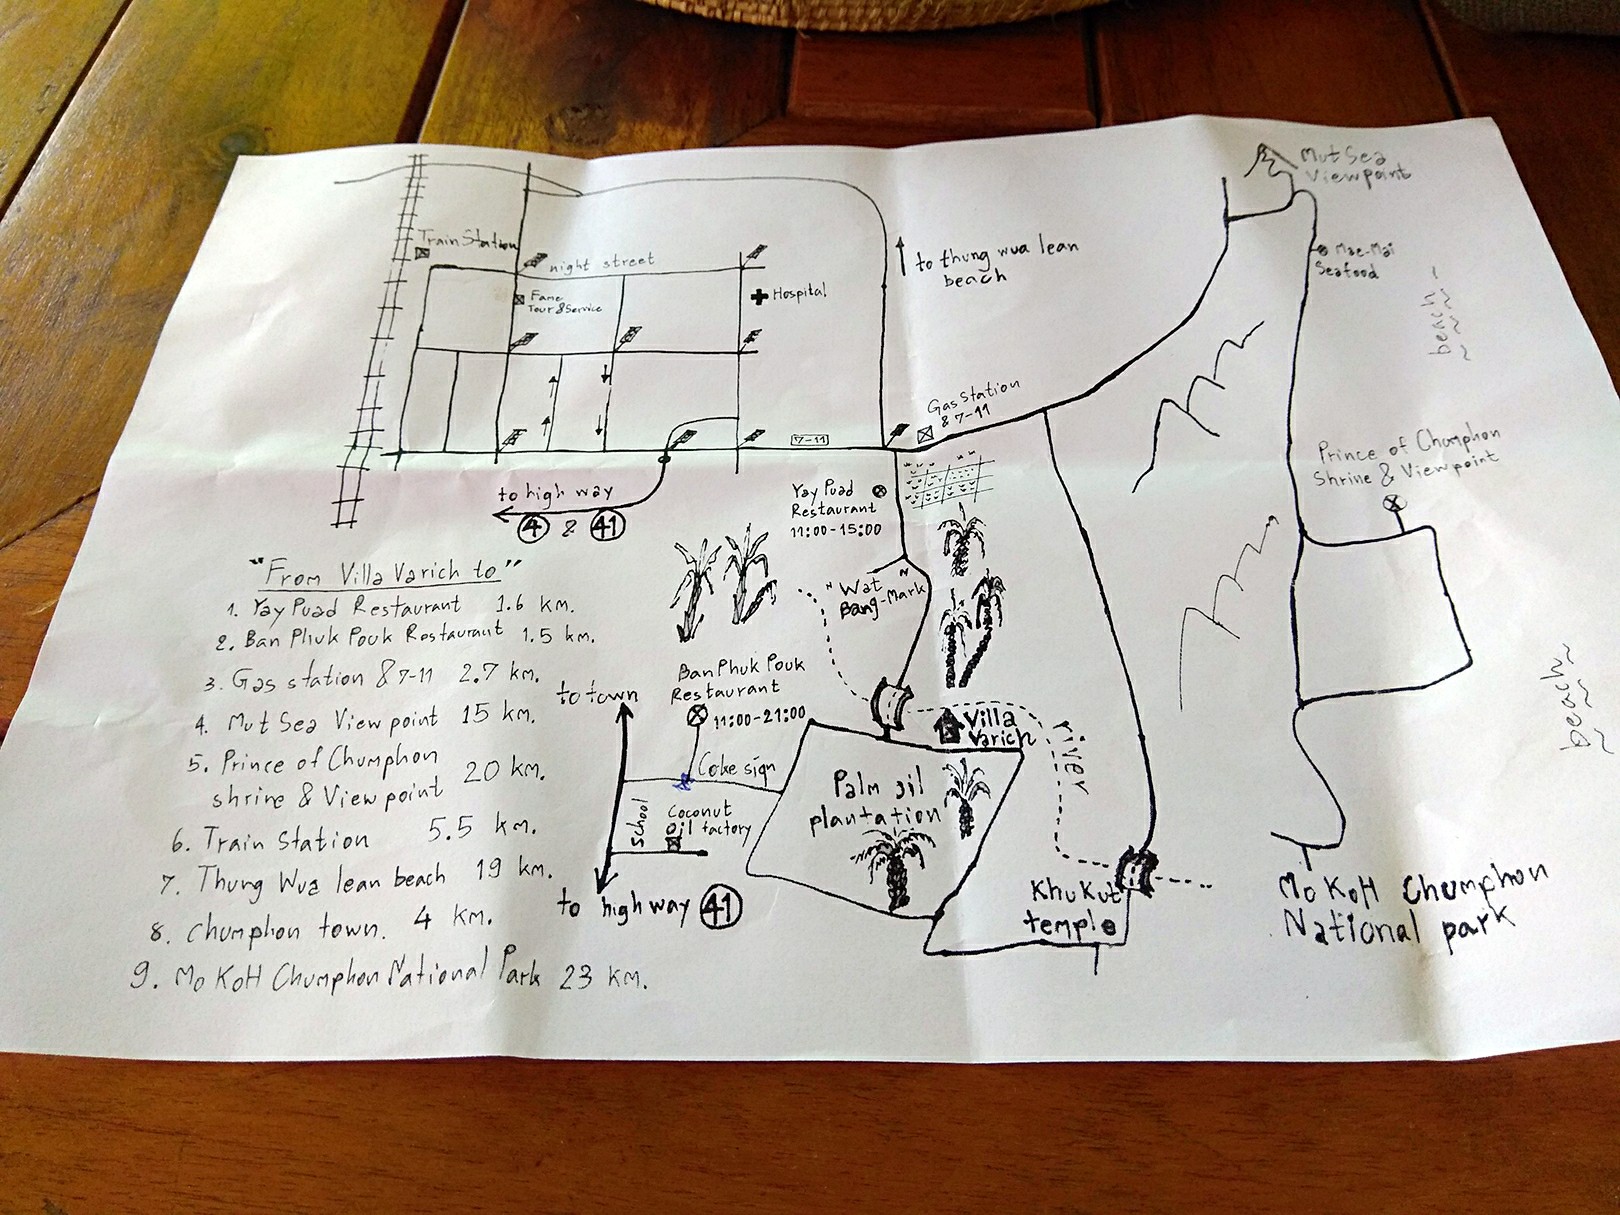 Mut Sea
Viewpoint
Train Station
night street
to thung wua lean
beach
Mae-Mai
Seafood
Fame
Tour & Service
Hospital
beach
Gas Station
& 7-11
7-11
Prince of Chumphon
Shrine & Viewpoint
to high way
4 & 41
Yay Puad
Restaurant
11:00-15:00
"From Villa Varich to"
1. Yay Puad Restaurant 1.6 km.
2. Ban Phuk Pouk Restaurant 1.5 km.
3. Gas station & 7-11 2.7 km.
4. Mut Sea Viewpoint 15 km.
5. Prince of Chumphon
shrine & Viewpoint 20 km.
6. Train Station 5.5 km.
7. Thung Wua lean beach 19 km.
8. Chumphon town. 4 km.
9. Mo KoH Chumphon National Park 23 km.
"Wat
Bang-Mark"
Ban Phuk Pouk
Restaurant
11:00-21:00
to town
Coke sign
school
Coconut
oil factory
to high way 41
Villa
Varich
river
Palm oil
plantation
Khu Kut
temple
beach
Mo KoH Chumphon
National park